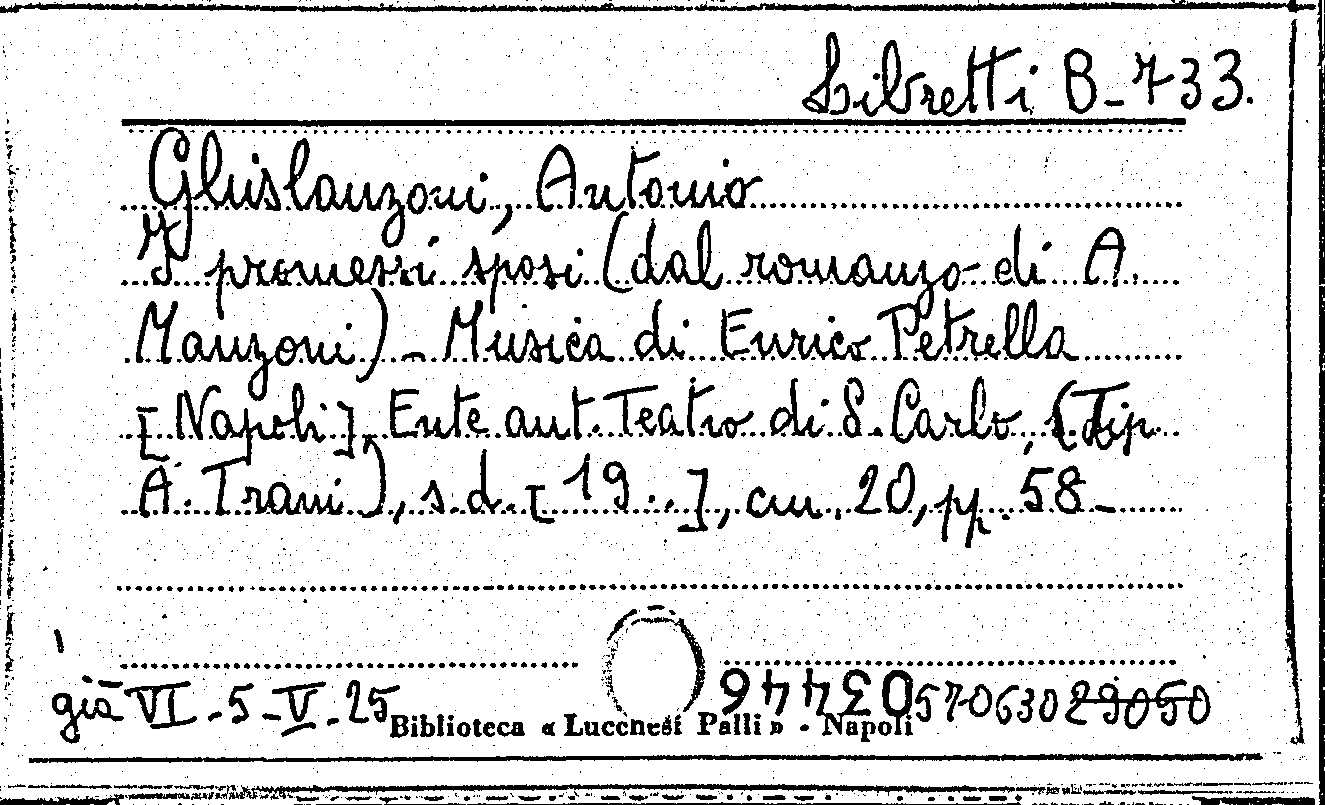 Libretti B-733.
Ghislanzoni, Antonio
I promessi sposi (dal romanzo di A.
Manzoni) - Musica di Enrico Petrella
[Napoli], Ente aut. Teatro di S. Carlo, (Tip.
A. Trani), s.d. [19..], cm. 20, pp. 58-
già VI-5-V-25
03446 570630 29050
Biblioteca « Lucchesi Palli » - Napoli